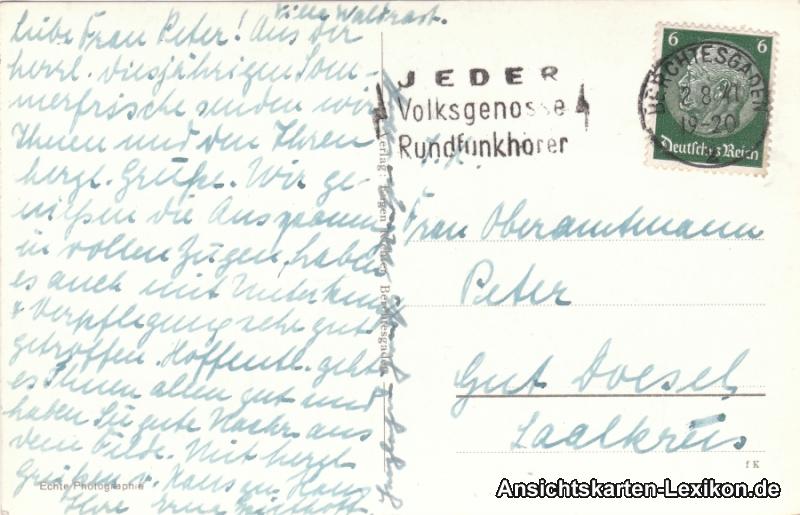 Villa Waldrast.
Liebe Frau Peter! Aus der
herrl. diesjährigen Som-
merfrische senden wir
Ihnen und den Ihren
herzl. Grüße. Wir ge-
nießen die Ausspann
in vollen Zügen, haben
es auch mit Unterkunft
& Verpflegung sehr gut
getroffen. Hoffentl. geht
es Ihnen allen gut und
haben Sie gute Nachr. aus
dem Felde. Mit herzl.
Grüßen v. Haus zu Haus
Ihre
Echte Photographie
Verlag: Berchtesgaden
JEDER
Volksgenosse
Rundfunkhörer
6 6
BERCHTESGADEN
2.8.41
19-20
Deutsches Reich
Frau Oberamtmann
Peter
Gut Doesel
Saalkreis
f K
Ansichtskarten-Lexikon.de